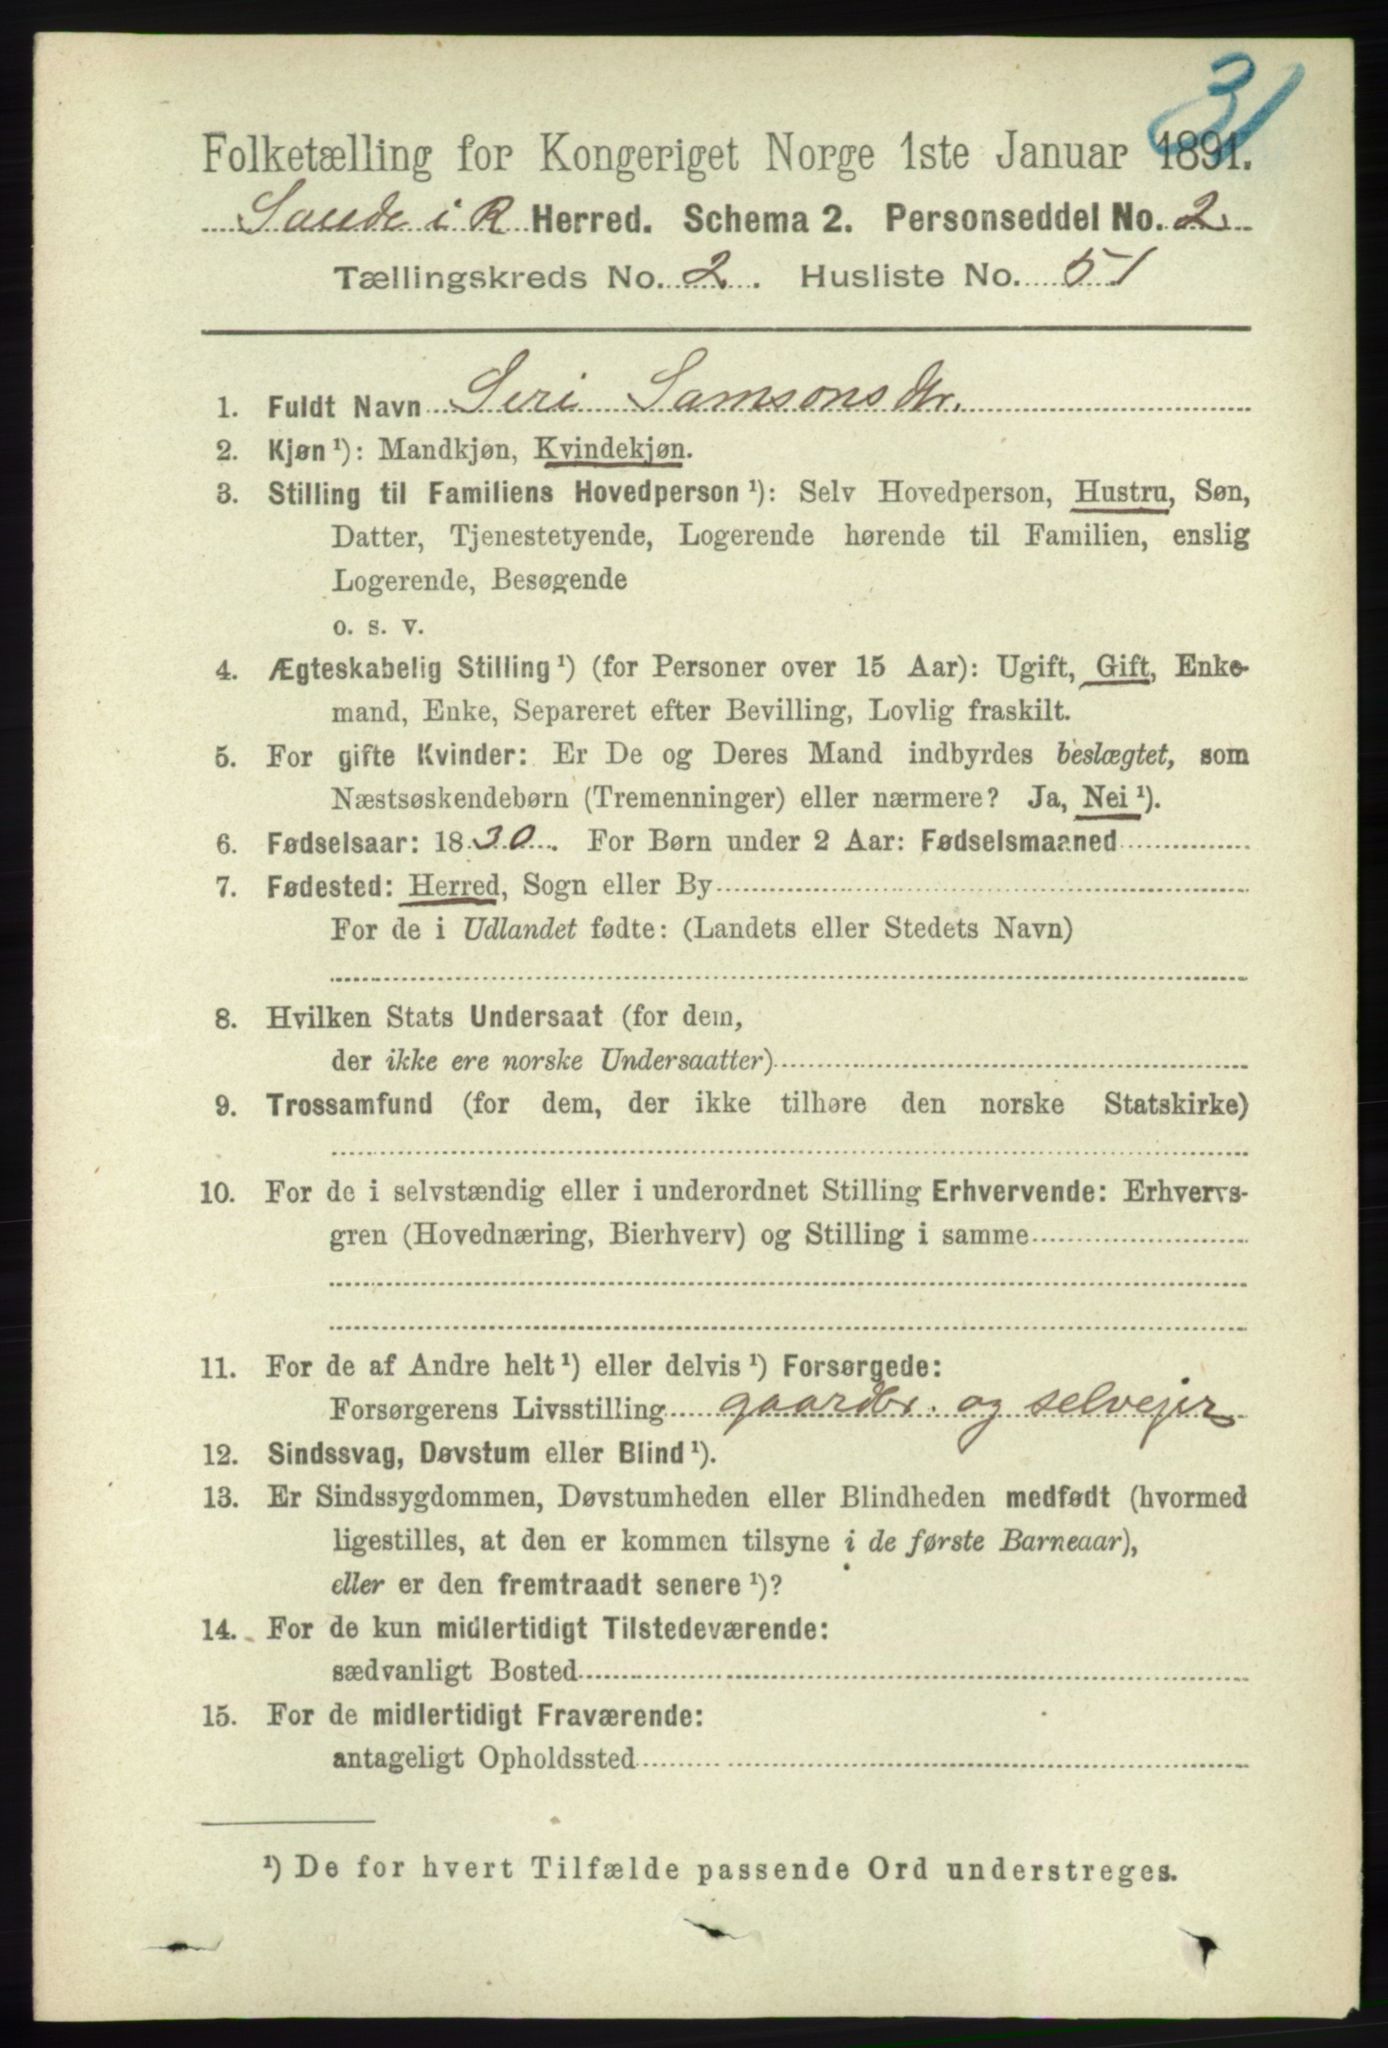 31
Folketælling for Kongeriget Norge 1ste Januar 1891.
Saude i R Herred. Schema 2. Personseddel No. 2.
Tællingskreds No. 2. Husliste No. 51
1. Fuldt Navn Siri Samsonsdtr.
2. Kjøn ¹): Mandkjøn, Kvindekjøn.
3. Stilling til Familiens Hovedperson ¹): Selv Hovedperson, Hustru, Søn,
Datter, Tjenestetyende, Logerende hørende til Familien, enslig
Logerende, Besøgende
o. s. v.
4. Ægteskabelig Stilling ¹) (for Personer over 15 Aar): Ugift, Gift, Enke-
mand, Enke, Separeret efter Bevilling, Lovlig fraskilt.
5. For gifte Kvinder: Er De og Deres Mand indbyrdes beslægtet, som
Næstsøskendebørn (Tremenninger) eller nærmere? Ja, Nei ¹).
6. Fødselsaar: 1830. For Børn under 2 Aar: Fødselsmaaned
7. Fødested: Herred, Sogn eller By
For de i Udlandet fødte: (Landets eller Stedets Navn)
8. Hvilken Stats Undersaat (for dem,
der ikke ere norske Undersaatter)
9. Trossamfund (for dem, der ikke tilhøre den norske Statskirke)
10. For de i selvstændig eller i underordnet Stilling Erhvervende: Erhvervs-
gren (Hovednæring, Bierhverv) og Stilling i samme
11. For de af Andre helt ¹) eller delvis ¹) Forsørgede:
Forsørgerens Livsstilling gaardbr. og selvejer
12. Sindssvag, Døvstum eller Blind ¹).
13. Er Sindssygdommen, Døvstumheden eller Blindheden medfødt (hvormed
ligestilles, at den er kommen tilsyne i de første Barneaar),
eller er den fremtraadt senere ¹)?
14. For de kun midlertidigt Tilstedeværende:
sædvanligt Bosted
15. For de midlertidigt Fraværende:
antageligt Opholdssted
¹) De for hvert Tilfælde passende Ord understreges.